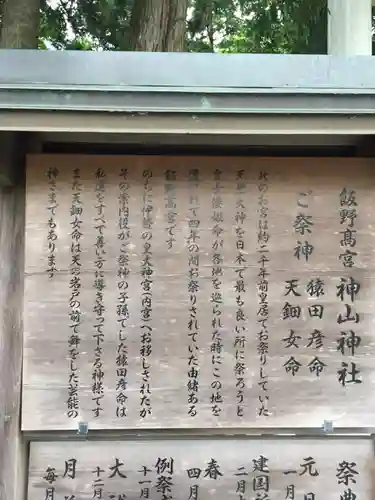 飯野高宮 神山神社
ご祭神 猿田彦命
天鈿女命
此のお宮は約二千年前皇居でお祭りしていた
天照大神を日本で最も良い所に祭ろうと
倭姫命が各地を巡られた時にこの地を
四年の間お祭りされていた由緒ある
飯野高宮です
のちに伊勢の皇大神宮(内宮)へお移しされたが
その案内役がご祭神の子孫でした猿田彦命は
私達をすべて善い方に導き守って下さる神様です
また天鈿女命は天の岩戸の前で舞をした芸能の
神さまでもあります
祭典
元
一月
建国
二月
春
四月
例祭
十一月
大
十二月
月
毎月